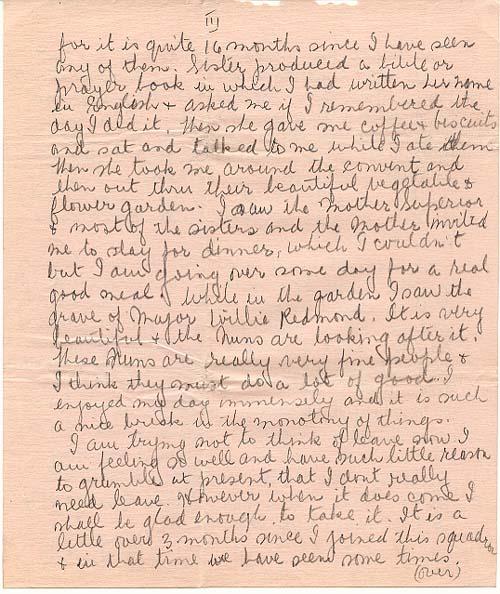 III
for it is quite 16 months since I have seen
any of them. Sister produced a bible or
prayer book in which I had written her name
in English & asked me if I remembered the
day I did it. Then she gave me coffee & biscuits
and sat and talked to me while I ate them
Then she took me around the convent and
then out thru their beautiful vegetable &
flower garden. I saw the Mother Superior
& most of the sisters and the Mother invited
me to stay for dinner, which I couldn't
but I am going over some day for a real
good meal. While in the garden I saw the
grave of Major Willie Redmond. It is very
beautiful & the Nuns are looking after it.
These Nuns are really very fine people &
I think they must do a lot of good. I
enjoyed my day immensely and it is such
a nice break in the monotony of things.
I am trying not to think of leave now I
am feeling so well and have such little reason
to grumble at present, that I dont really
need leave. However when it does come I
shall be glad enough to take it. It is a
little over 3 months since I joined this squadron
& in that time we have seen some times.
(over)